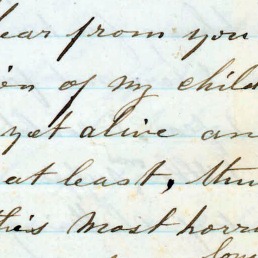 hear from you
of my child
yet alive an
at least, thu
this most horr